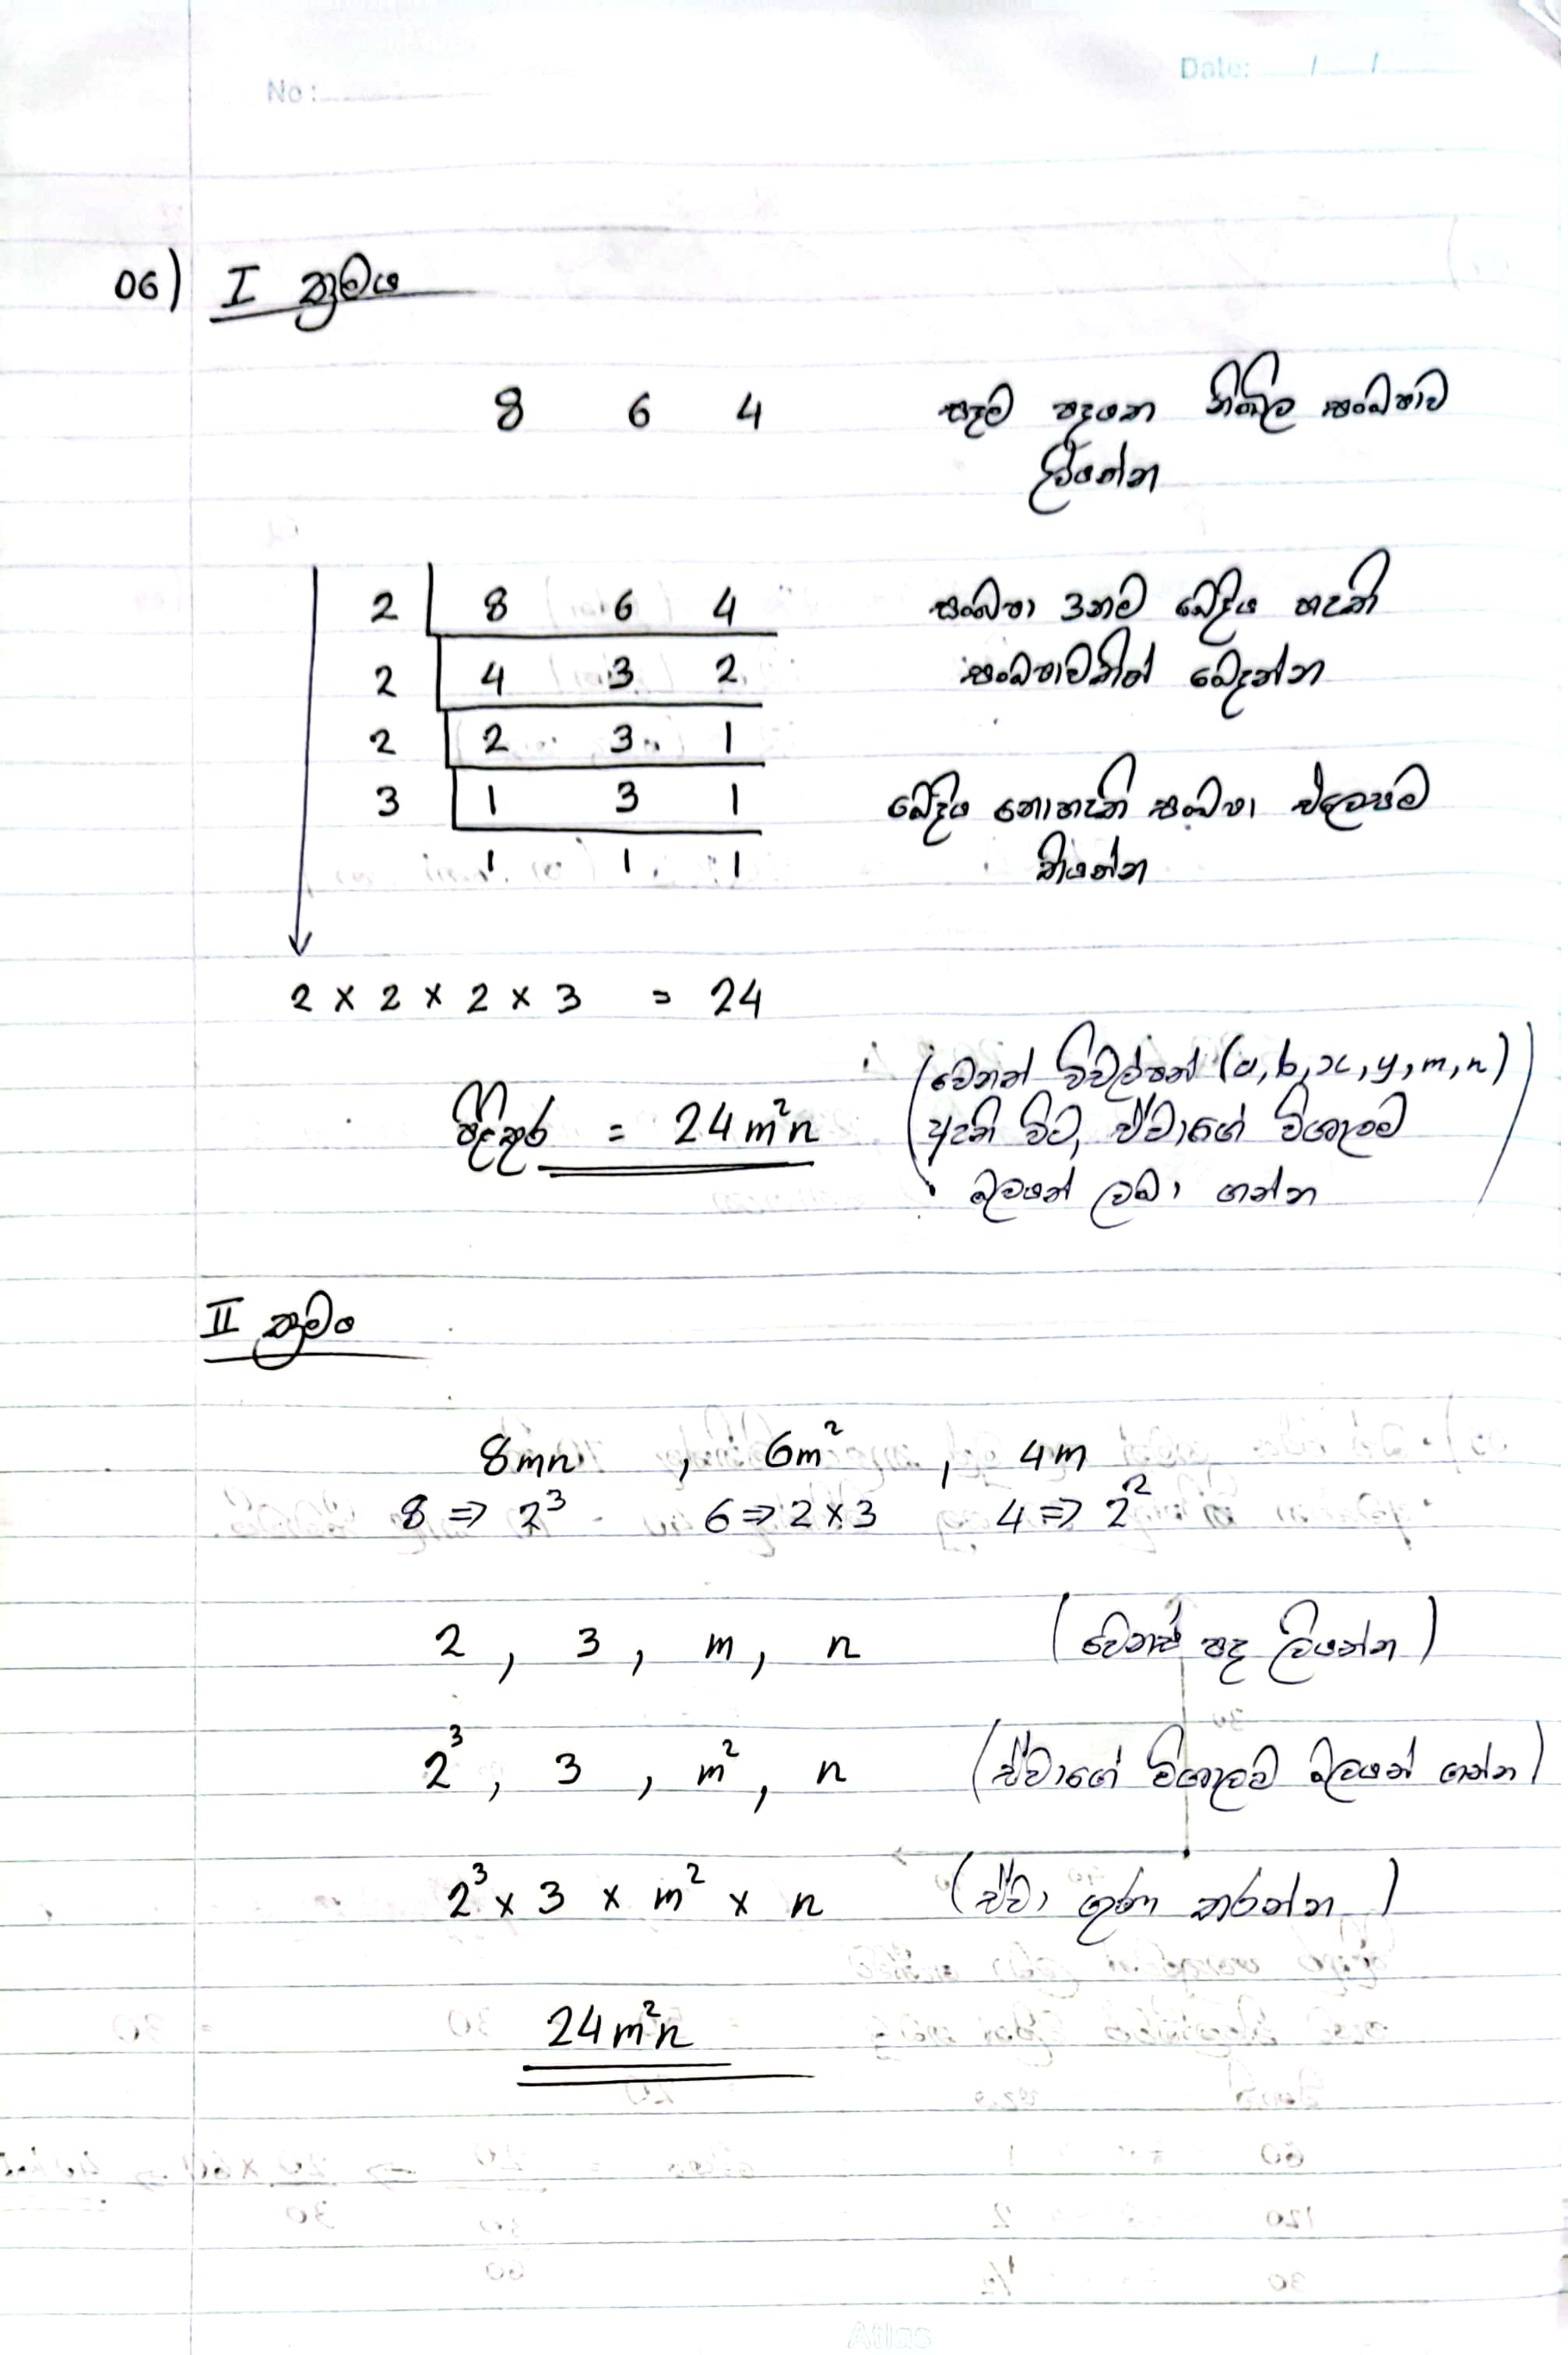 No:
Date: / /
06) I ක්‍රමය
8 6 4 සෑම පදයක නිඛිල සංඛ්‍යාව
ලියන්න
2 8 6 4 සංඛ්‍යා 3නම බේදිය හැකි
2 4 3 2 සංඛ්‍යාවකින් බෙදන්න
2 2 3 1
3 1 3 1 බේදිය නොහැකි සංඛ්‍යා එලෙසම
1 1 1 තියන්න
2 × 2 × 2 × 3 = 24
පිළිතුර = 24m²n (වෙනත් විචල්‍යන් (a, b, x, y, m, n)
ඇති විට, ඒවාගේ විශාලම
බලයන් ලබා ගන්න)
II ක්‍රමය
8mn , 6m² , 4m
8 ⇒ 2³ 6 ⇒ 2 × 3 4 ⇒ 2²
2 , 3 , m , n (වෙනස් පද ලියන්න)
2³ , 3 , m² , n (ඒවාගේ විශාලම බලයන් ගන්න)
2³ × 3 × m² × n (ඒවා ගුණ කරන්න)
24m²n
Atlas